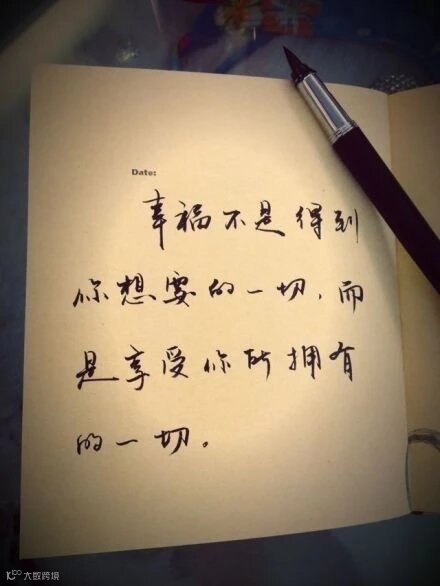 Date:
幸福不是得到
你想要的一切，而
是享受你所拥有
的一切。
大数跨境